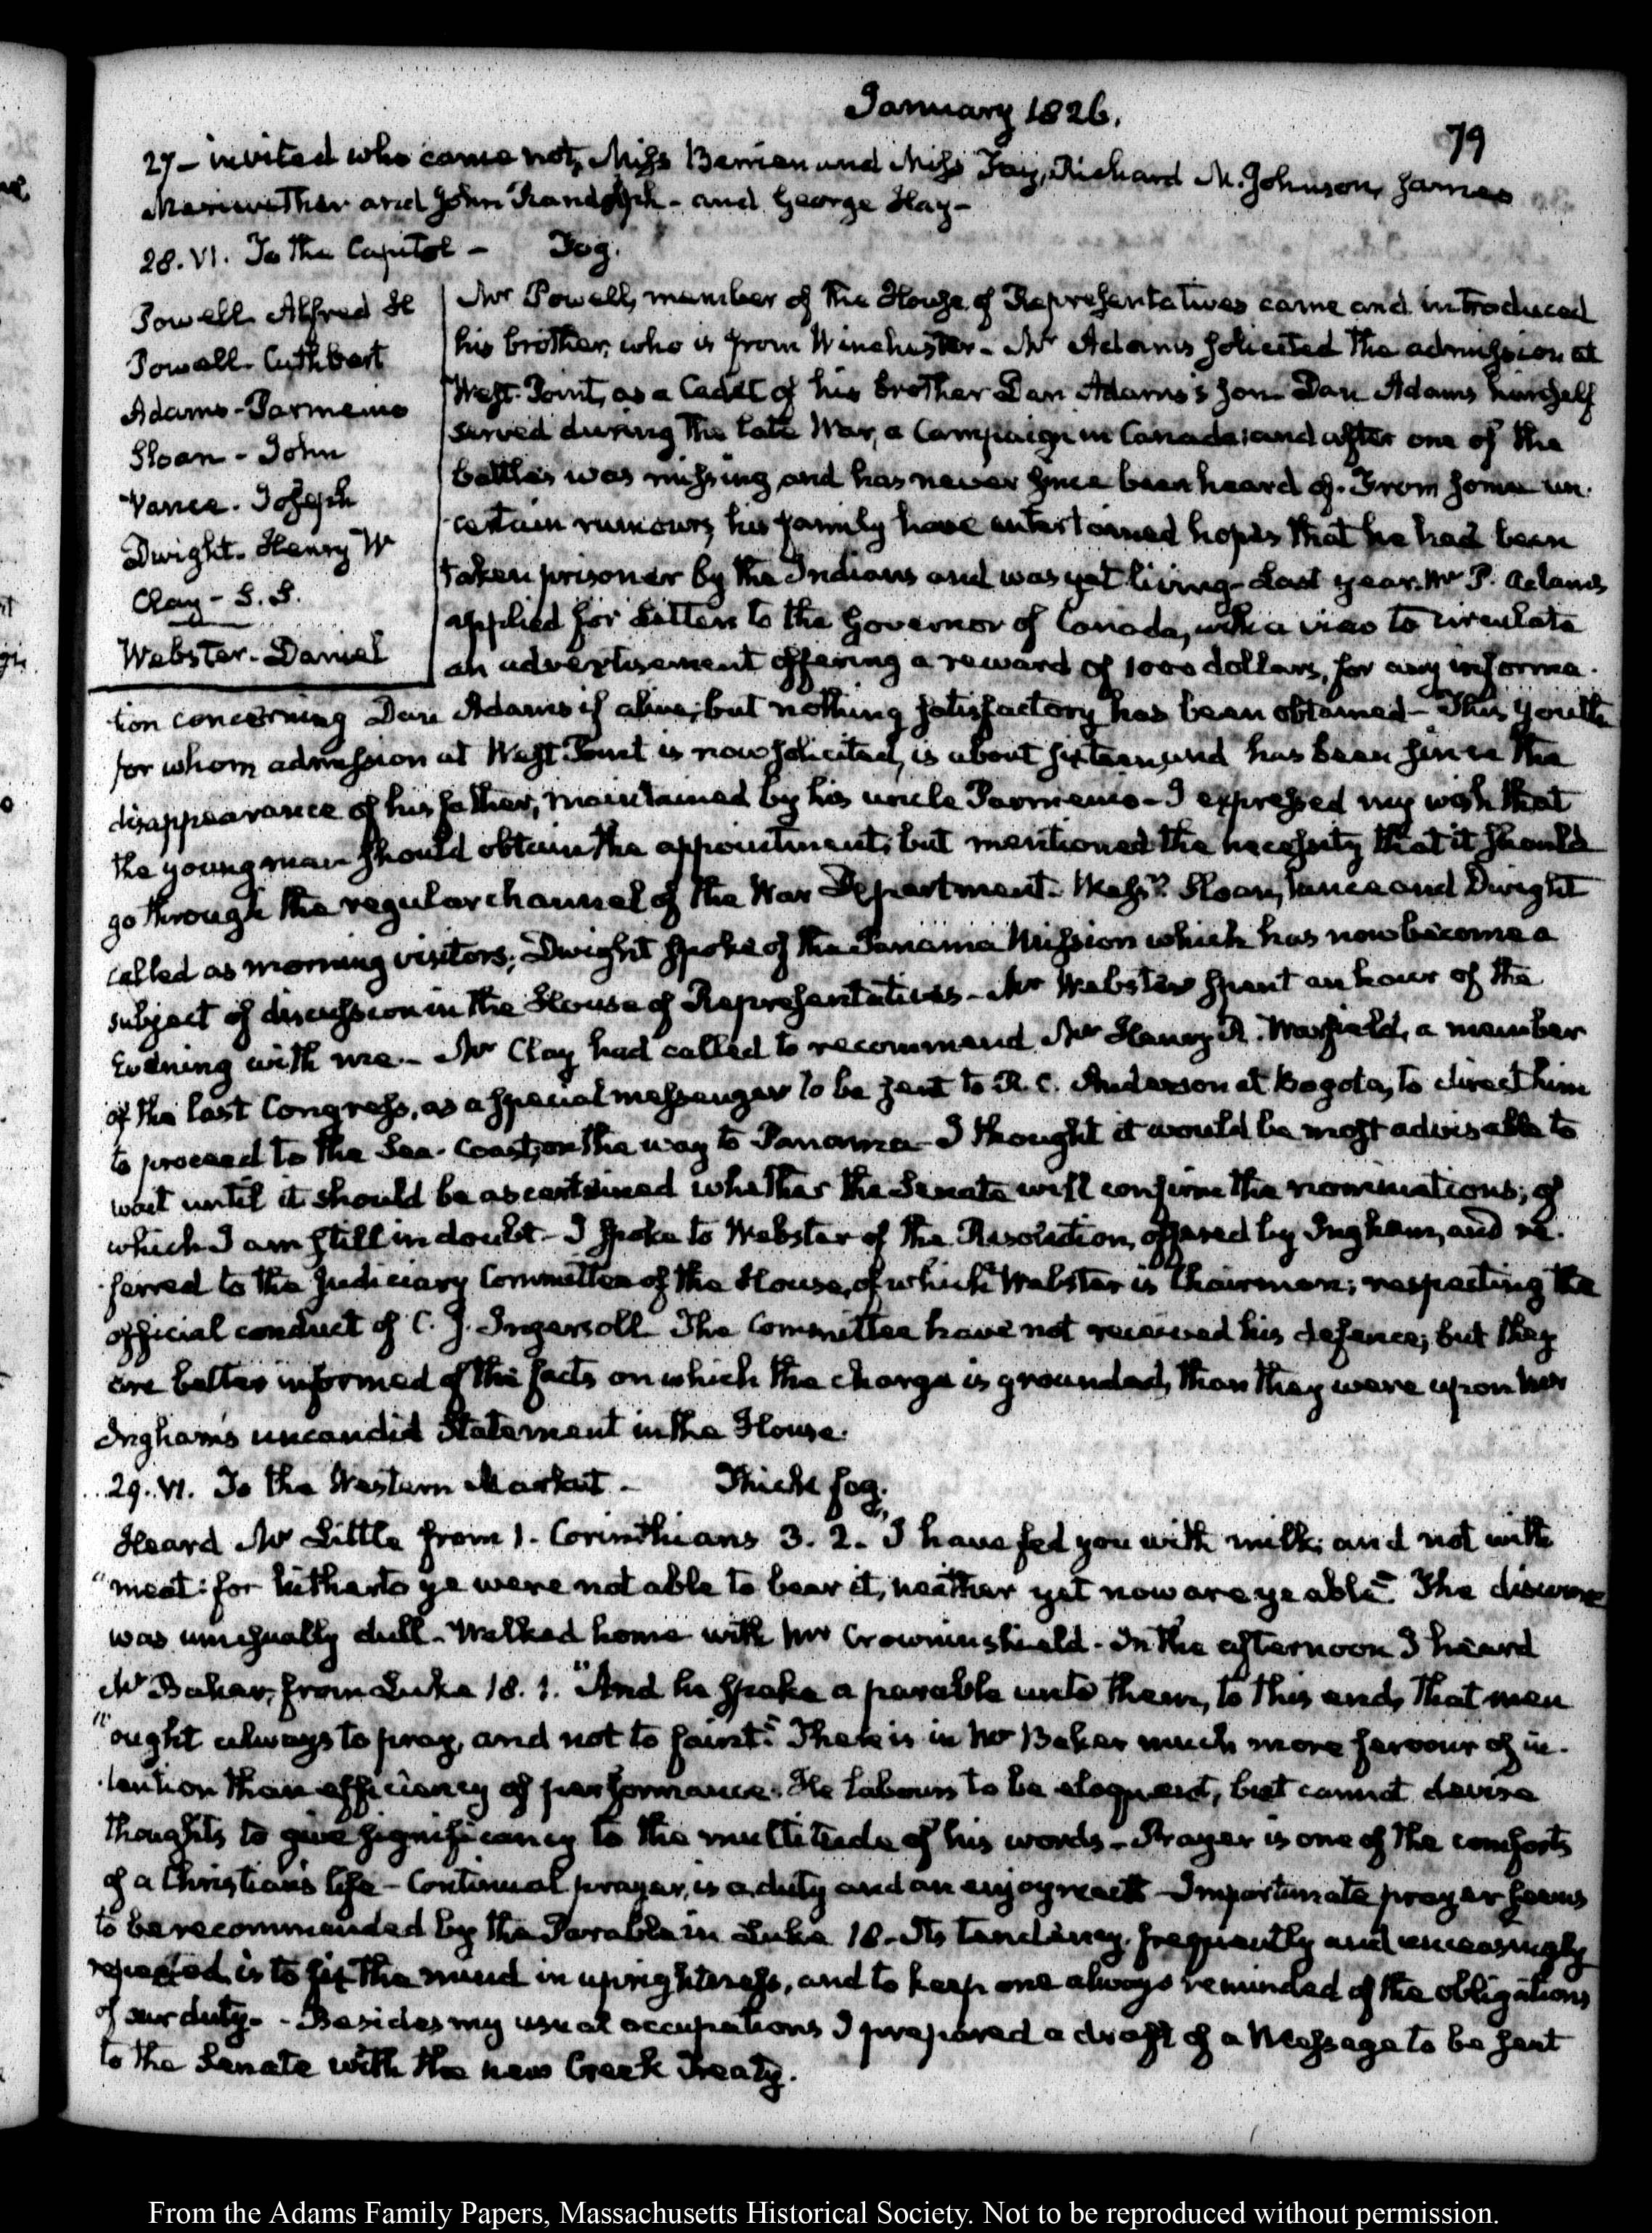 January 1826.
79
27 – invited who came not, Miss Berrien and Miss Fay, Richard M. Johnson, James
Meriwether and John Randolph – and George Hay –
28. VI. To the Capitol – Fog.
Powell Alfred H
Powell. Cuthbert
Adams – Parmenio
Sloan – John
Vance. Joseph
Dwight. Henry W
Clay – S. S.
Webster. Daniel
Mr Powell, member of the House of Representatives came and introduced
his brother, who is from Winchester – Mr Adams solicited the admission at
West-Point, as a Cadet of his brother Dan Adams's son – Dan Adams himself
served during the late War, a Campaign in Canada; and after one of the
battles was missing, and has never since been heard of. From some un-
certain rumours, his family have entertained hopes that he had been
taken prisoner by the Indians and was yet living – Last year Mr P. Adams
applied for Letters to the Governor of Canada, with a view to circulate
an advertisement offering a reward of 1000 dollars, for any informa-
tion concerning Dan Adams if alive; but nothing satisfactory has been obtained – This youth
for whom admission at West Point is now solicited, is about sixteen, and has been since the
disappearance of his father, maintained by his uncle Parmenio – I expressed my wish that
the young man should obtain the appointment; but mentioned the necessity that it should
go through the regular channel of the War Department. Messrs Sloan, Vance and Dwight
called as morning visitors; Dwight spoke of the Panama Mission which has now become a
subject of discussion in the House of Representatives – Mr Webster spent an hour of the
Evening with me – Mr Clay had called to recommend Mr Henry R. Warfield, a member
of the last Congress, as a special messenger to be sent to R. C. Anderson at Bogota, to direct him
to proceed to the Sea-Coast, on the way to Panama – I thought it would be most advisable to
wait until it should be ascertained whether the Senate will confirm the nominations; of
which I am still in doubt – I spoke to Webster of the Resolution, offered by Ingham, and re-
ferred to the Judiciary Committee of the House, of which Webster is Chairman; respecting the
official conduct of C. J. Ingersoll. The Committee have not received his defence; but they
are better informed of the facts on which the charge is grounded, than they were upon Mr
Ingham's uncandid Statement in the House.
29. VI. To the Western Market – Thick fog.
Heard Mr Little from 1. Corinthians 3. 2. "I have fed you with milk; and not with
"meat: for hitherto ye were not able to bear it, neither yet now are ye able". The discourse
was unusually dull – Walked home with Mr Crowninshield – In the afternoon I heard
Mr Baker, from Luke 18. 1. "And he spake a parable unto them, to this end, that men
"ought always to pray, and not to faint". There is in Mr Baker much more fervour of in-
tention than efficiency of performance. He labours to be eloquent, but cannot devise
thoughts to give significancy to the multitude of his words – Prayer is one of the comforts
of a Christian's life – Continual prayer, is a duty and an enjoyment – Importunate prayer seems
to be recommended by the Parable in Luke 18. Its tendency frequently and unceasingly
repeated is to fix the mind in uprightness, and to keep one always reminded of the obligations
of our duty. – Besides my usual occupations I prepared a draft of a Message to be sent
to the Senate with the new Creek Treaty.
From the Adams Family Papers, Massachusetts Historical Society. Not to be reproduced without permission.